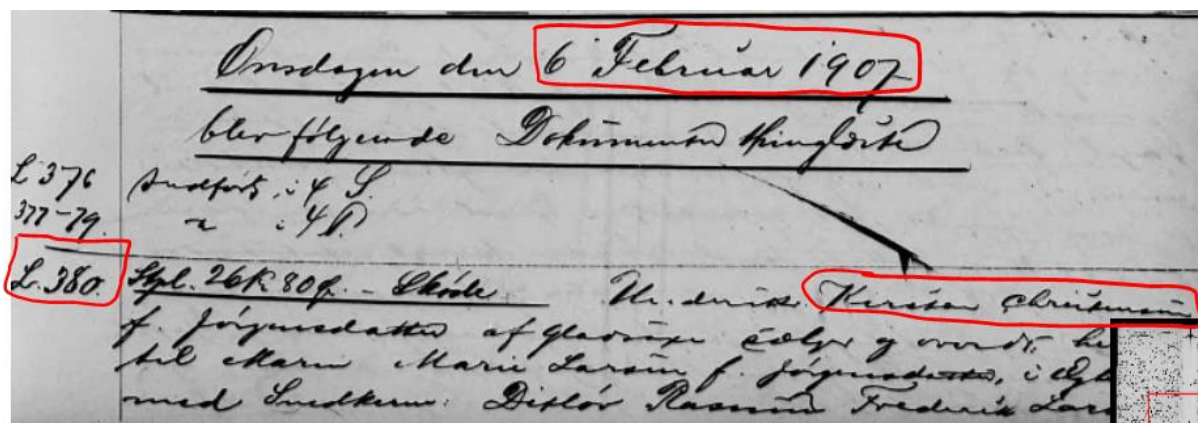 Onsdagen den 6 Februar 1907
blev følgende Dokumenter thinglæste
L 376 Indført i 4 S.
377-79. " i 4 P.
L. 380. Stpl. 26 K 80 f. - Skøde. Kirsten Christensen
f. Jørgensdatter af Gladsaxe sælger og
til Maren Marie Larsen f. Jørgensdatter, i
med Snedkerm. Ditlev Rasmus Frederik Lars